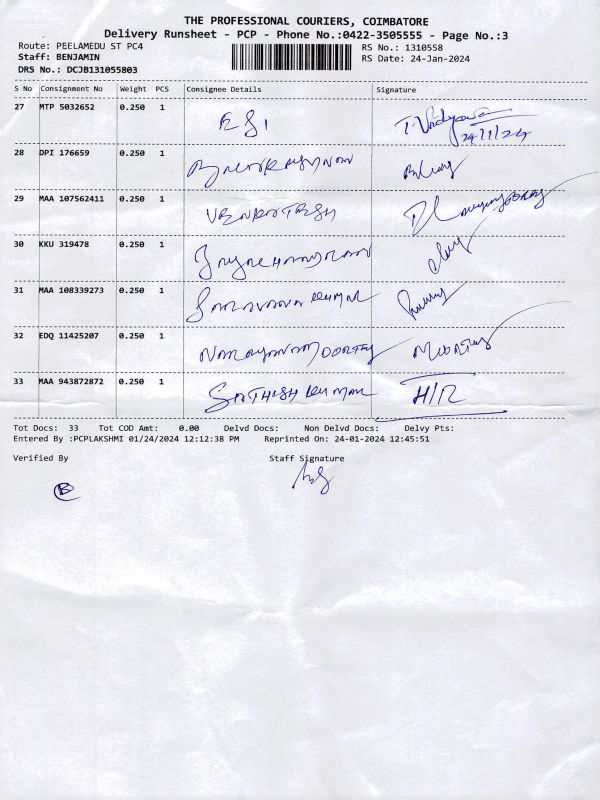 THE PROFESSIONAL COURIERS, COIMBATORE
Delivery Runsheet - PCP - Phone No.:0422-3505555 - Page No.:3
Route: PEELAMEDU ST PC4 RS No.: 1310558
Staff: BENJAMIN RS Date: 24-Jan-2024
DRS No.: DCJB131055803
S No Consignment No Weight PCS Consignee Details Signature
27 MTP 5032652 0.250 1 ESI 24/1/24
28 DPI 176659 0.250 1
29 MAA 107562411 0.250 1 VENKATESH
30 KKU 319478 0.250 1
31 MAA 108339273 0.250 1 Saravana kumar
32 EDQ 11425207 0.250 1 Narayanamoorthy
33 MAA 943872872 0.250 1 SATHISH KUMAR H/R
Tot Docs: 33 Tot COD Amt: 0.00 Delvd Docs: Non Delvd Docs: Delvy Pts:
Entered By :PCPLAKSHMI 01/24/2024 12:12:38 PM Reprinted On: 24-01-2024 12:45:51
Verified By Staff Signature
B